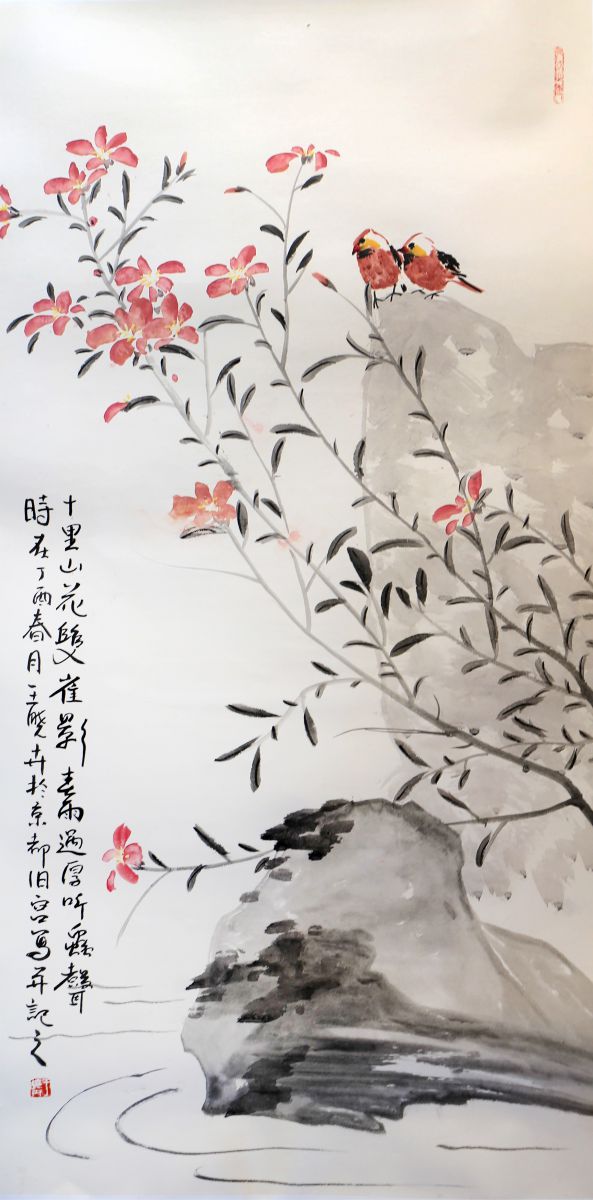 十里山花雙雀影春雨過後听蟲聲
時在丁酉春月王曉卉於京都旧宫写并記之